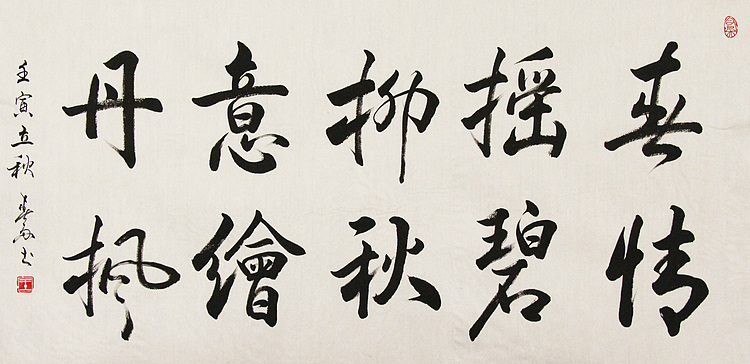 春情
摇碧
柳秋
意繪
丹枫
壬寅立秋 书